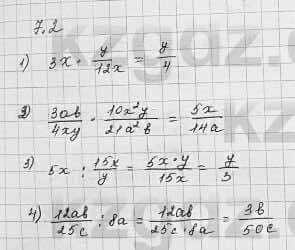 7.2
1) 3x · y/12x = y/4
2) 3ab/4xy · 10x²y/21a²b = 5x/14a
3) 5x : 15x/y = 5x·y/15x = y/3
4) 12ab/25c : 8a = 12ab/25c·8a = 3b/50c